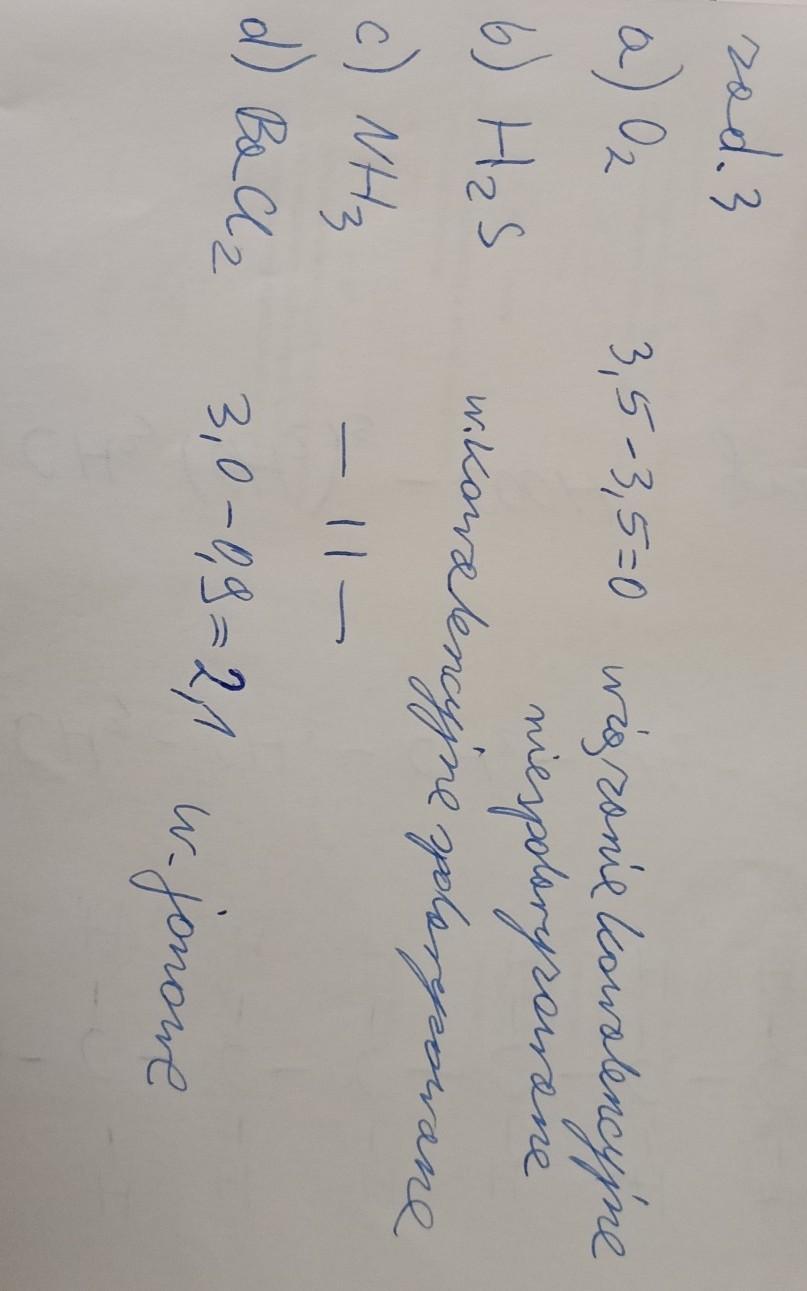 zad. 3
a) O2 3,5-3,5=0 wiązanie kowalencyjne
niespolaryzowane
b) H2S w. kowalencyjne spolaryzowane
c) NH3 — || —
d) BaCl2 3,0-0,9=2,1 w. jonowe